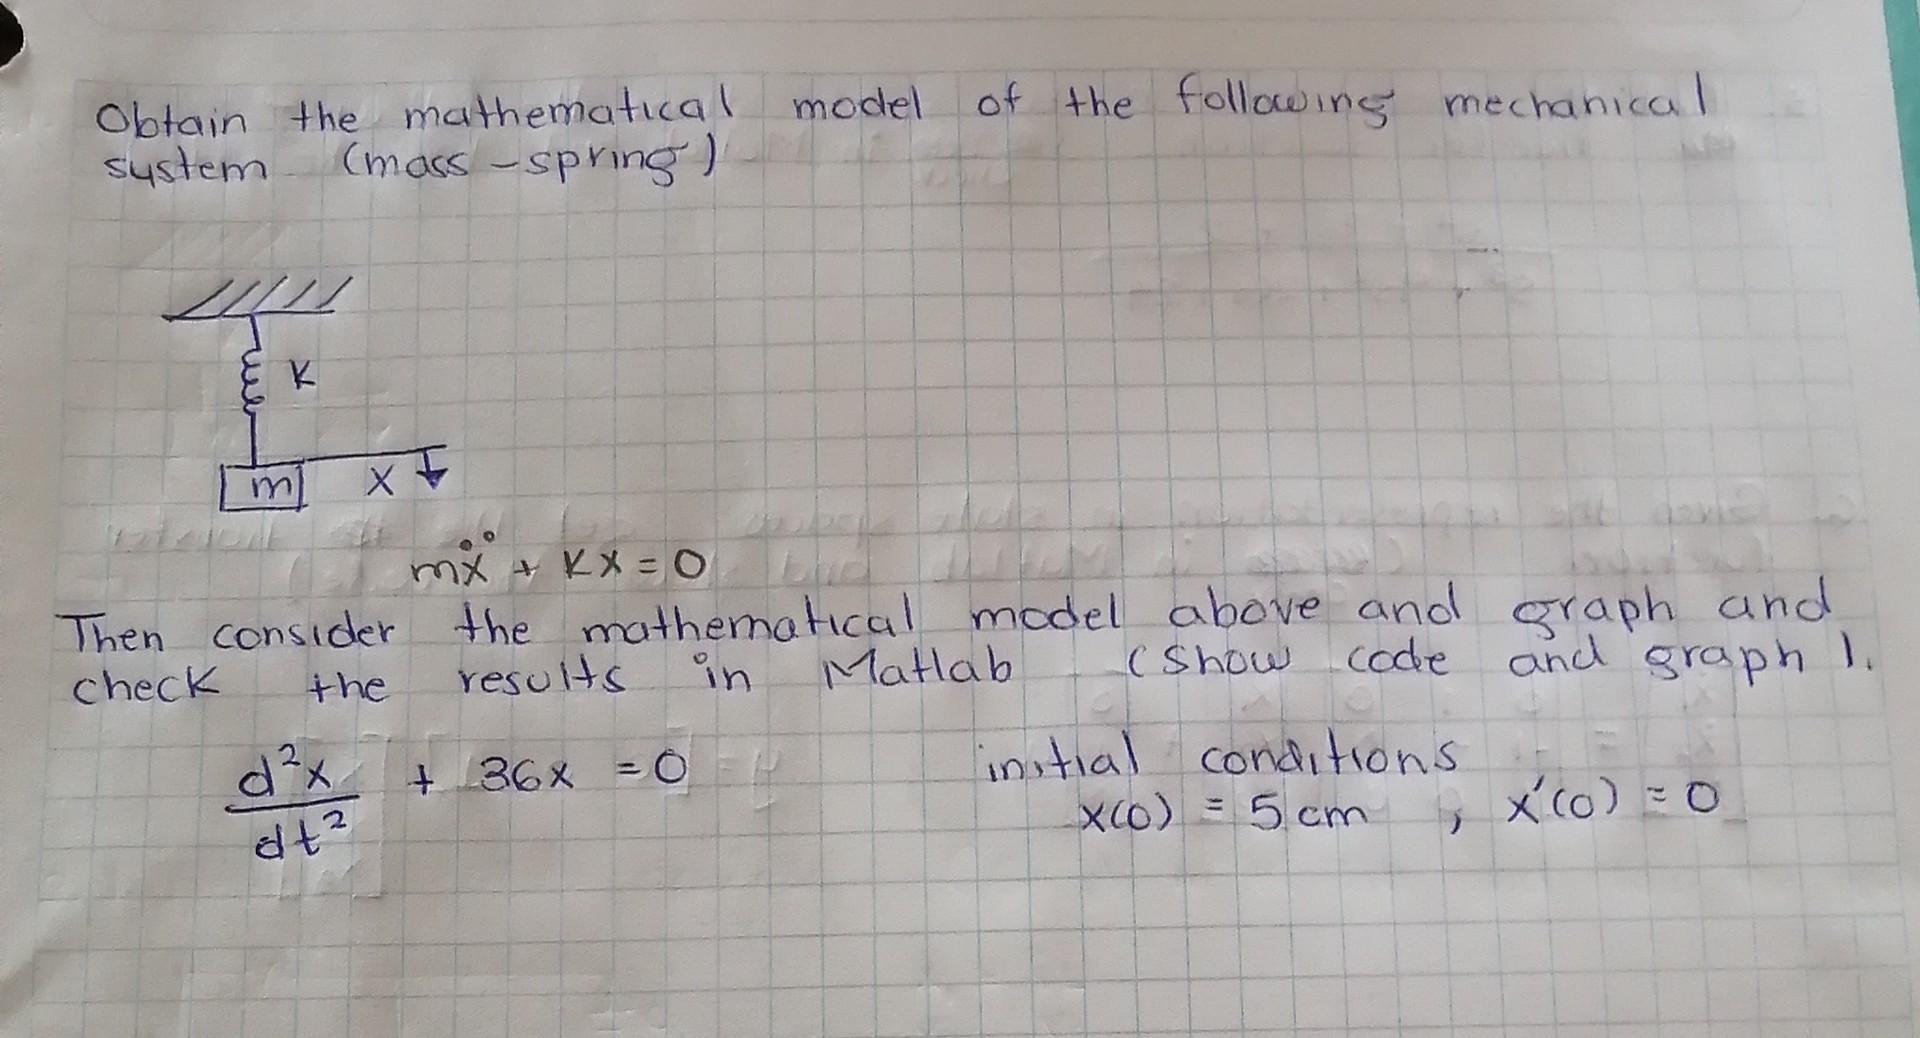 Obtain the mathematical model of the following mechanical
system (mass-spring)
K
m x
mẍ + Kx = 0
Then consider the mathematical model above and graph and
check the results in Matlab (show code and graph).
d²x/dt² + 36x = 0 initial conditions
x(0) = 5cm , x'(0) = 0